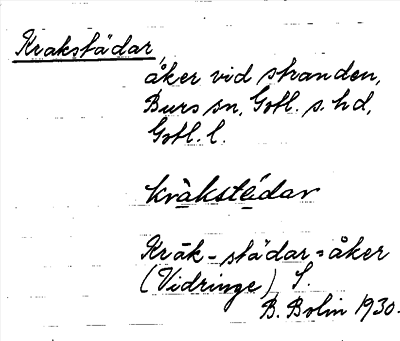 Krakstädar,
åker vid stranden,
Burs sn, Gotl. s. hd,
Gotl. l.
kràkstédar
Kråk-städar = åker
(Vidringe) S.
B. Bolin 1930.